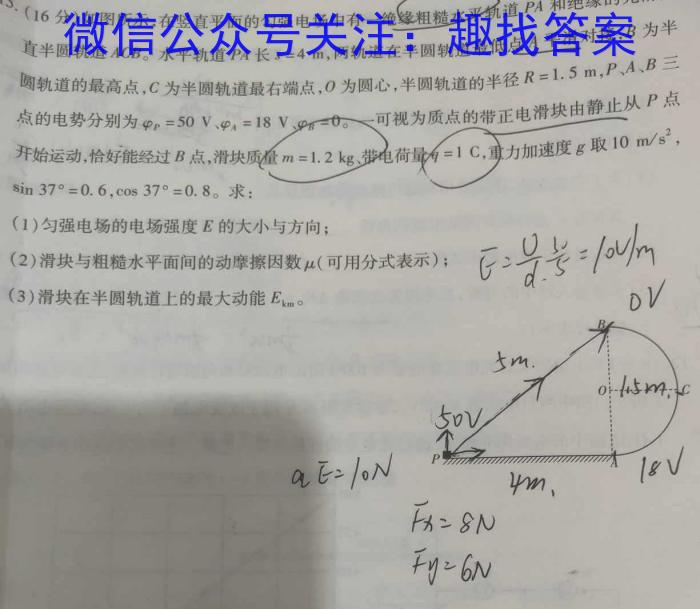 (16分)如图所示,在竖直平面的匀强电场中有一绝缘粗糙水平轨道PA和绝缘的光
微信公众号关注:趣找答案
直半圆轨道ACB。水平轨道PA长 =4 m,两轨道在半圆轨道最低点 对接,B为半
圆轨道的最高点,C为半圆轨道最右端点,O为圆心,半圆轨道的半径R=1.5 m,P、A、B三
点的电势分别为φP=50 V、φA=18 V、φB=0。一可视为质点的带正电滑块由静止从P点
开始运动,恰好能经过B点,滑块质量m=1.2 kg、带电荷量q=1 C,重力加速度g取10 m/s²,
sin 37°=0.6,cos 37°=0.8。求:
(1)匀强电场的电场强度E的大小与方向;
(2)滑块与粗糙水平面间的动摩擦因数μ(可用分式表示);
(3)滑块在半圆轨道上的最大动能Ekm。
E=U/d=50/5=10V/m
0V
B
5m
O 1.5m C
50V
P
A
18V
4m
qE=10N
Fx=8N
Fy=6N